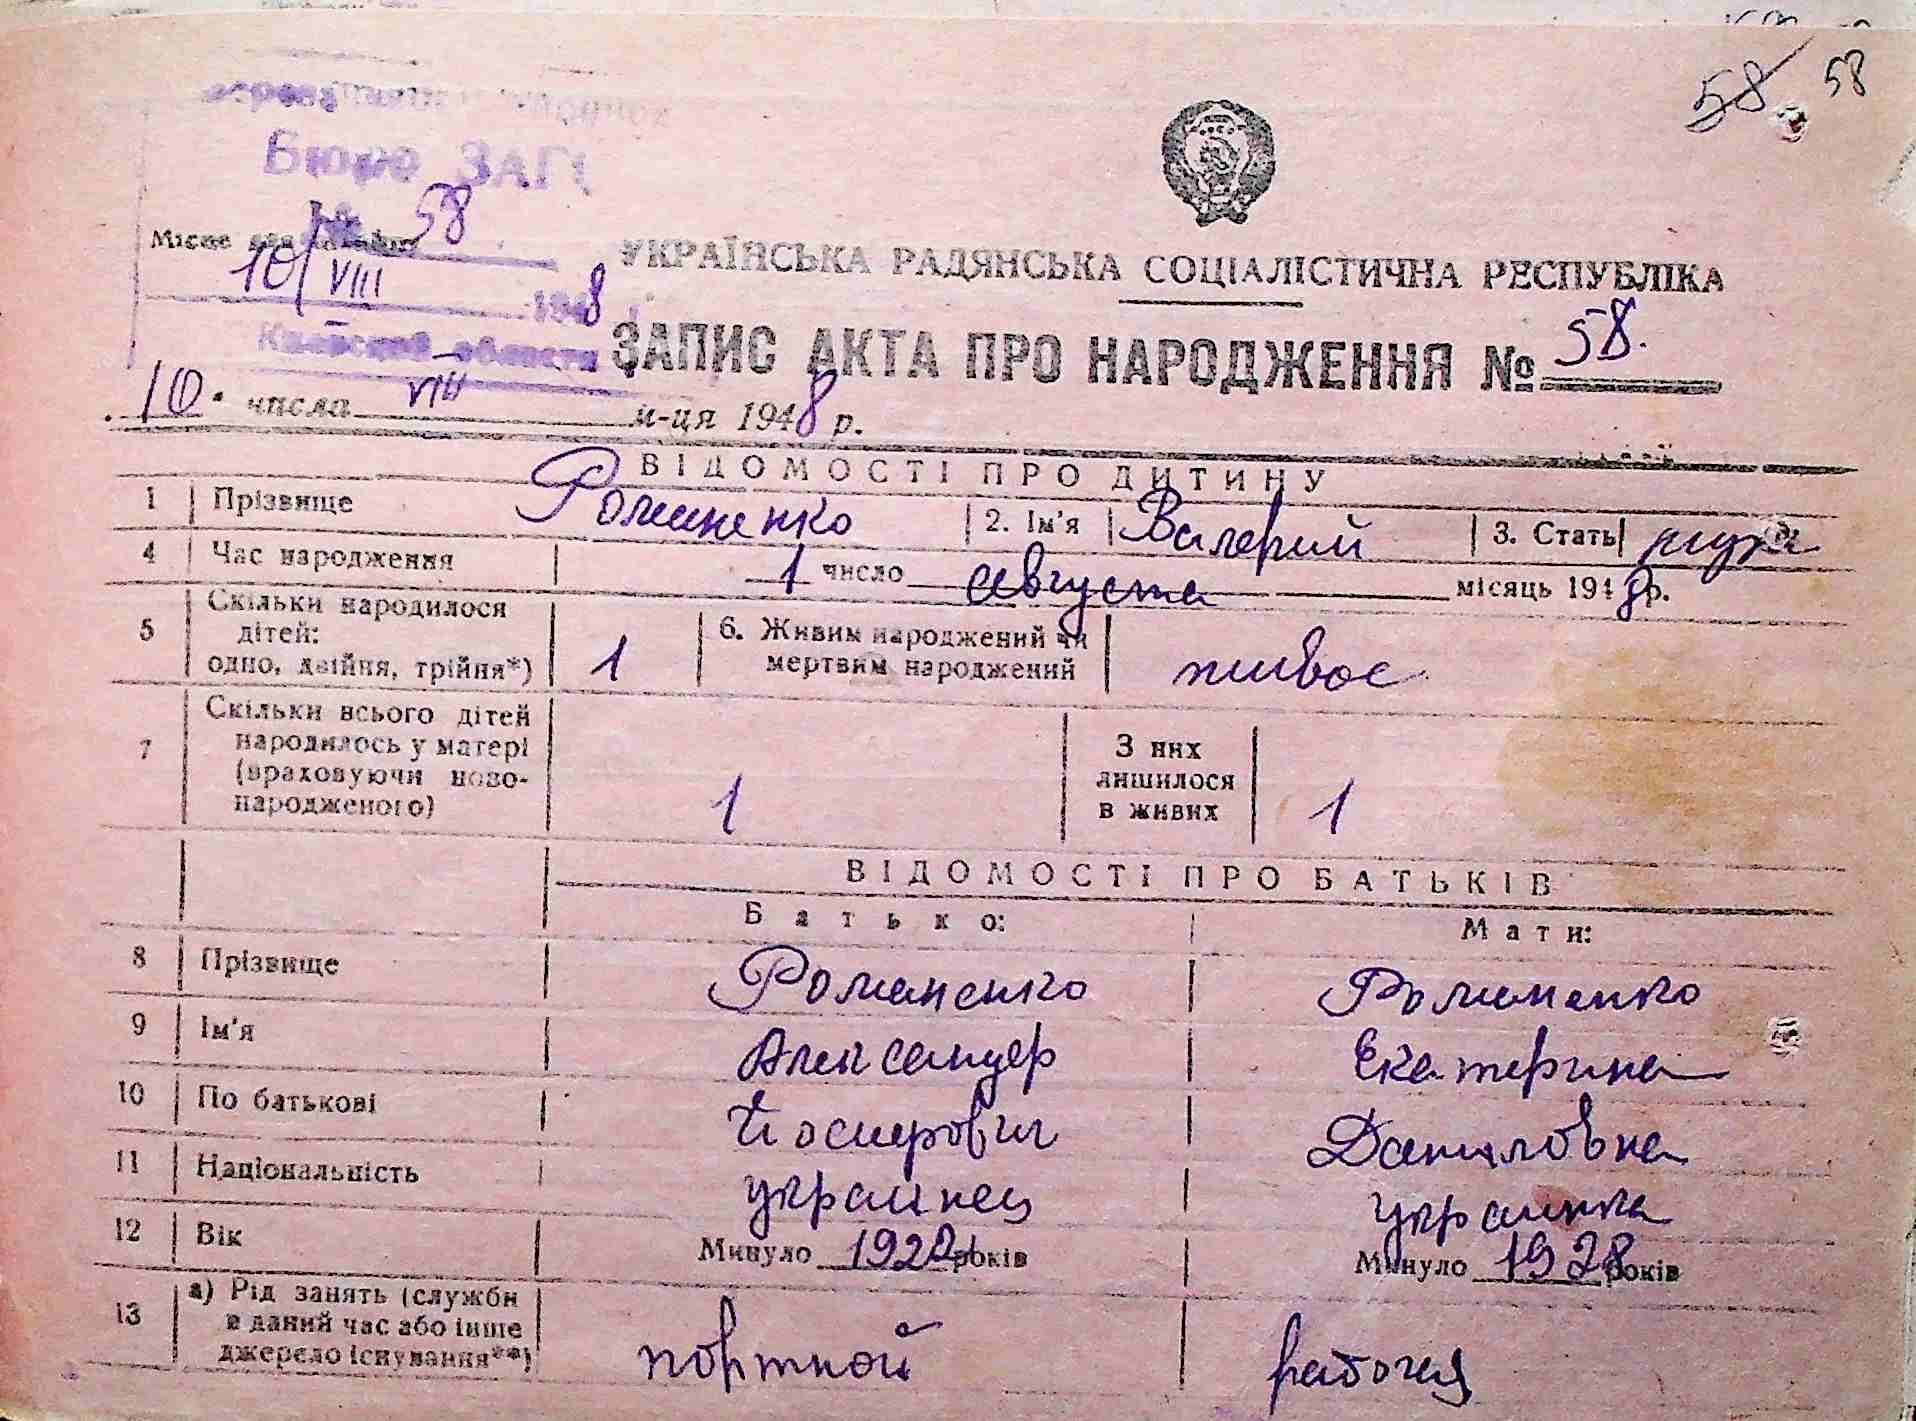 58 58
Бюро ЗАГС
№ 58
Місце для
10/VIII 1948
Киевской области
УКРАЇНСЬКА РАДЯНСЬКА СОЦІАЛІСТИЧНА РЕСПУБЛІКА
ЗАПИС АКТА ПРО НАРОДЖЕННЯ № 58.
10 числа VIII м-ця 1948 р.
ВІДОМОСТІ ПРО ДИТИНУ
1 Прізвище Романенко 2. Ім'я Валерий 3. Стать муж
4 Час народження 1 число августа місяць 1948 р.
5 Скільки народилося
дітей:
одно, двійня, трійня*) 1 6. Живим народжений чи
мертвим народжений живое
7 Скільки всього дітей
народилось у матері
(враховуючи ново-
народженого) 1 З них
лишилося
в живих 1
ВІДОМОСТІ ПРО БАТЬКІВ
Батько: Мати:
8 Прізвище Романенко Романенко
9 Ім'я Александер Екатерина
10 По батькові Иосипович Даниловна
11 Національність украинец украинка
12 Вік Минуло 1922 років Минуло 1928 років
13 а) Рід занять (служби
в даний час або інше
джерело існування**) портной рабочая